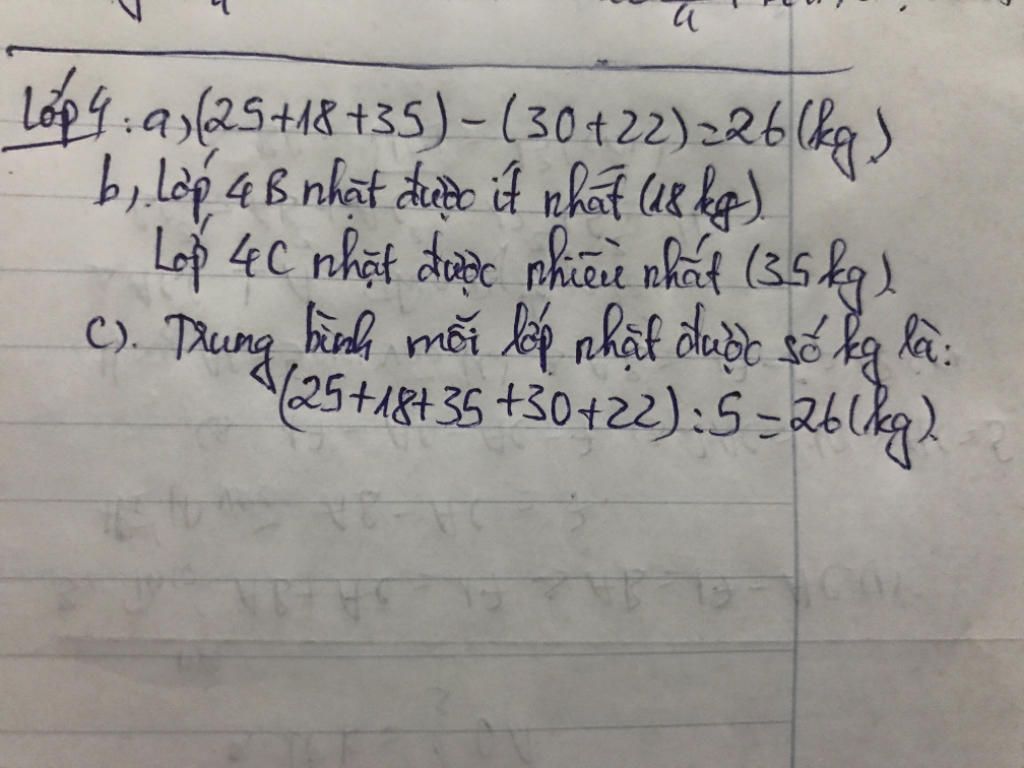 Lớp 4: a, (25+18+35) - (30+22) = 26 (kg)
b, Lớp 4B nhặt được ít nhất (18 kg).
Lớp 4C nhặt được nhiều nhất (35 kg).
c). Trung bình mỗi lớp nhặt được số kg là:
(25+18+35+30+22) : 5 = 26 (kg).